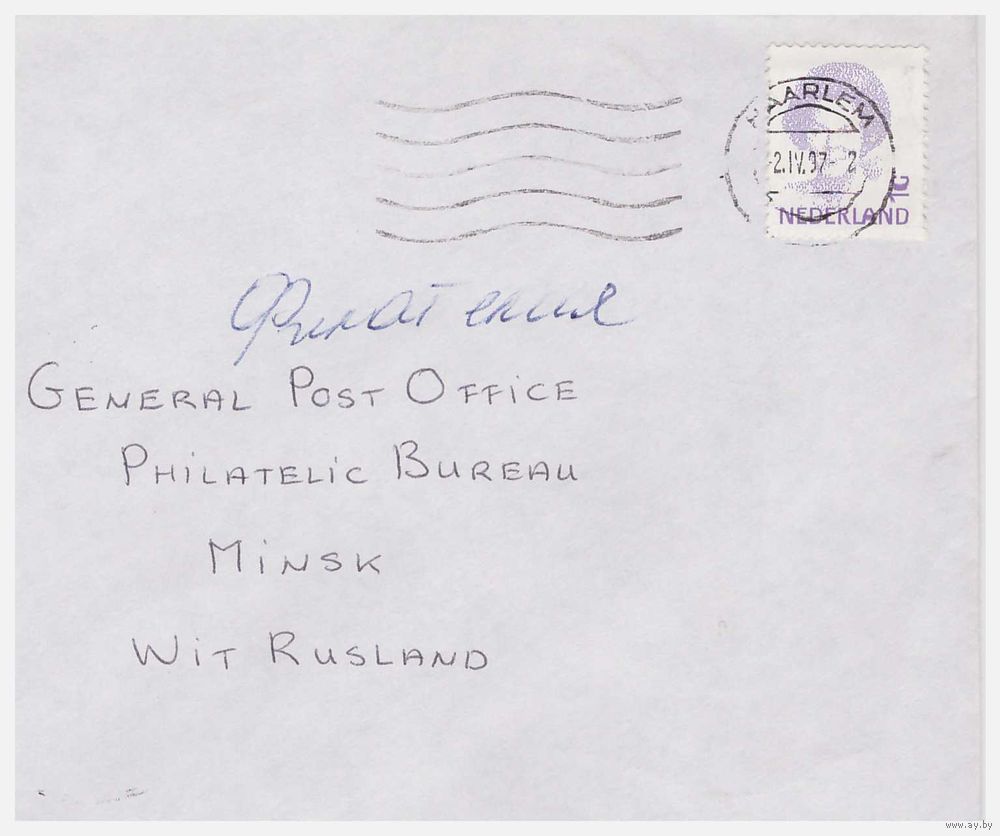 HAARLEM
-2.IV.97- 2
NEDERLAND
Филателия
GENERAL POST OFFICE
PHILATELIC BUREAU
MINSK
WIT RUSLAND
www.ay.by